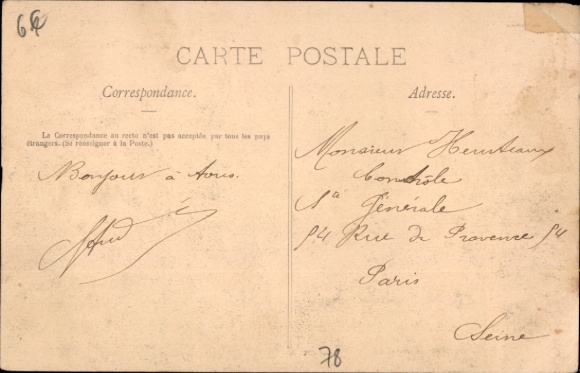 6
CARTE POSTALE
Correspondance.
La Correspondance au recto n'est pas acceptée par tous les pays
étrangers. (Se renseigner à la Poste.)
Bonjour à tous.
Adresse.
Monsieur
Contrôle
Sté Générale
54 Rue de Provence 54
Paris
Seine
78